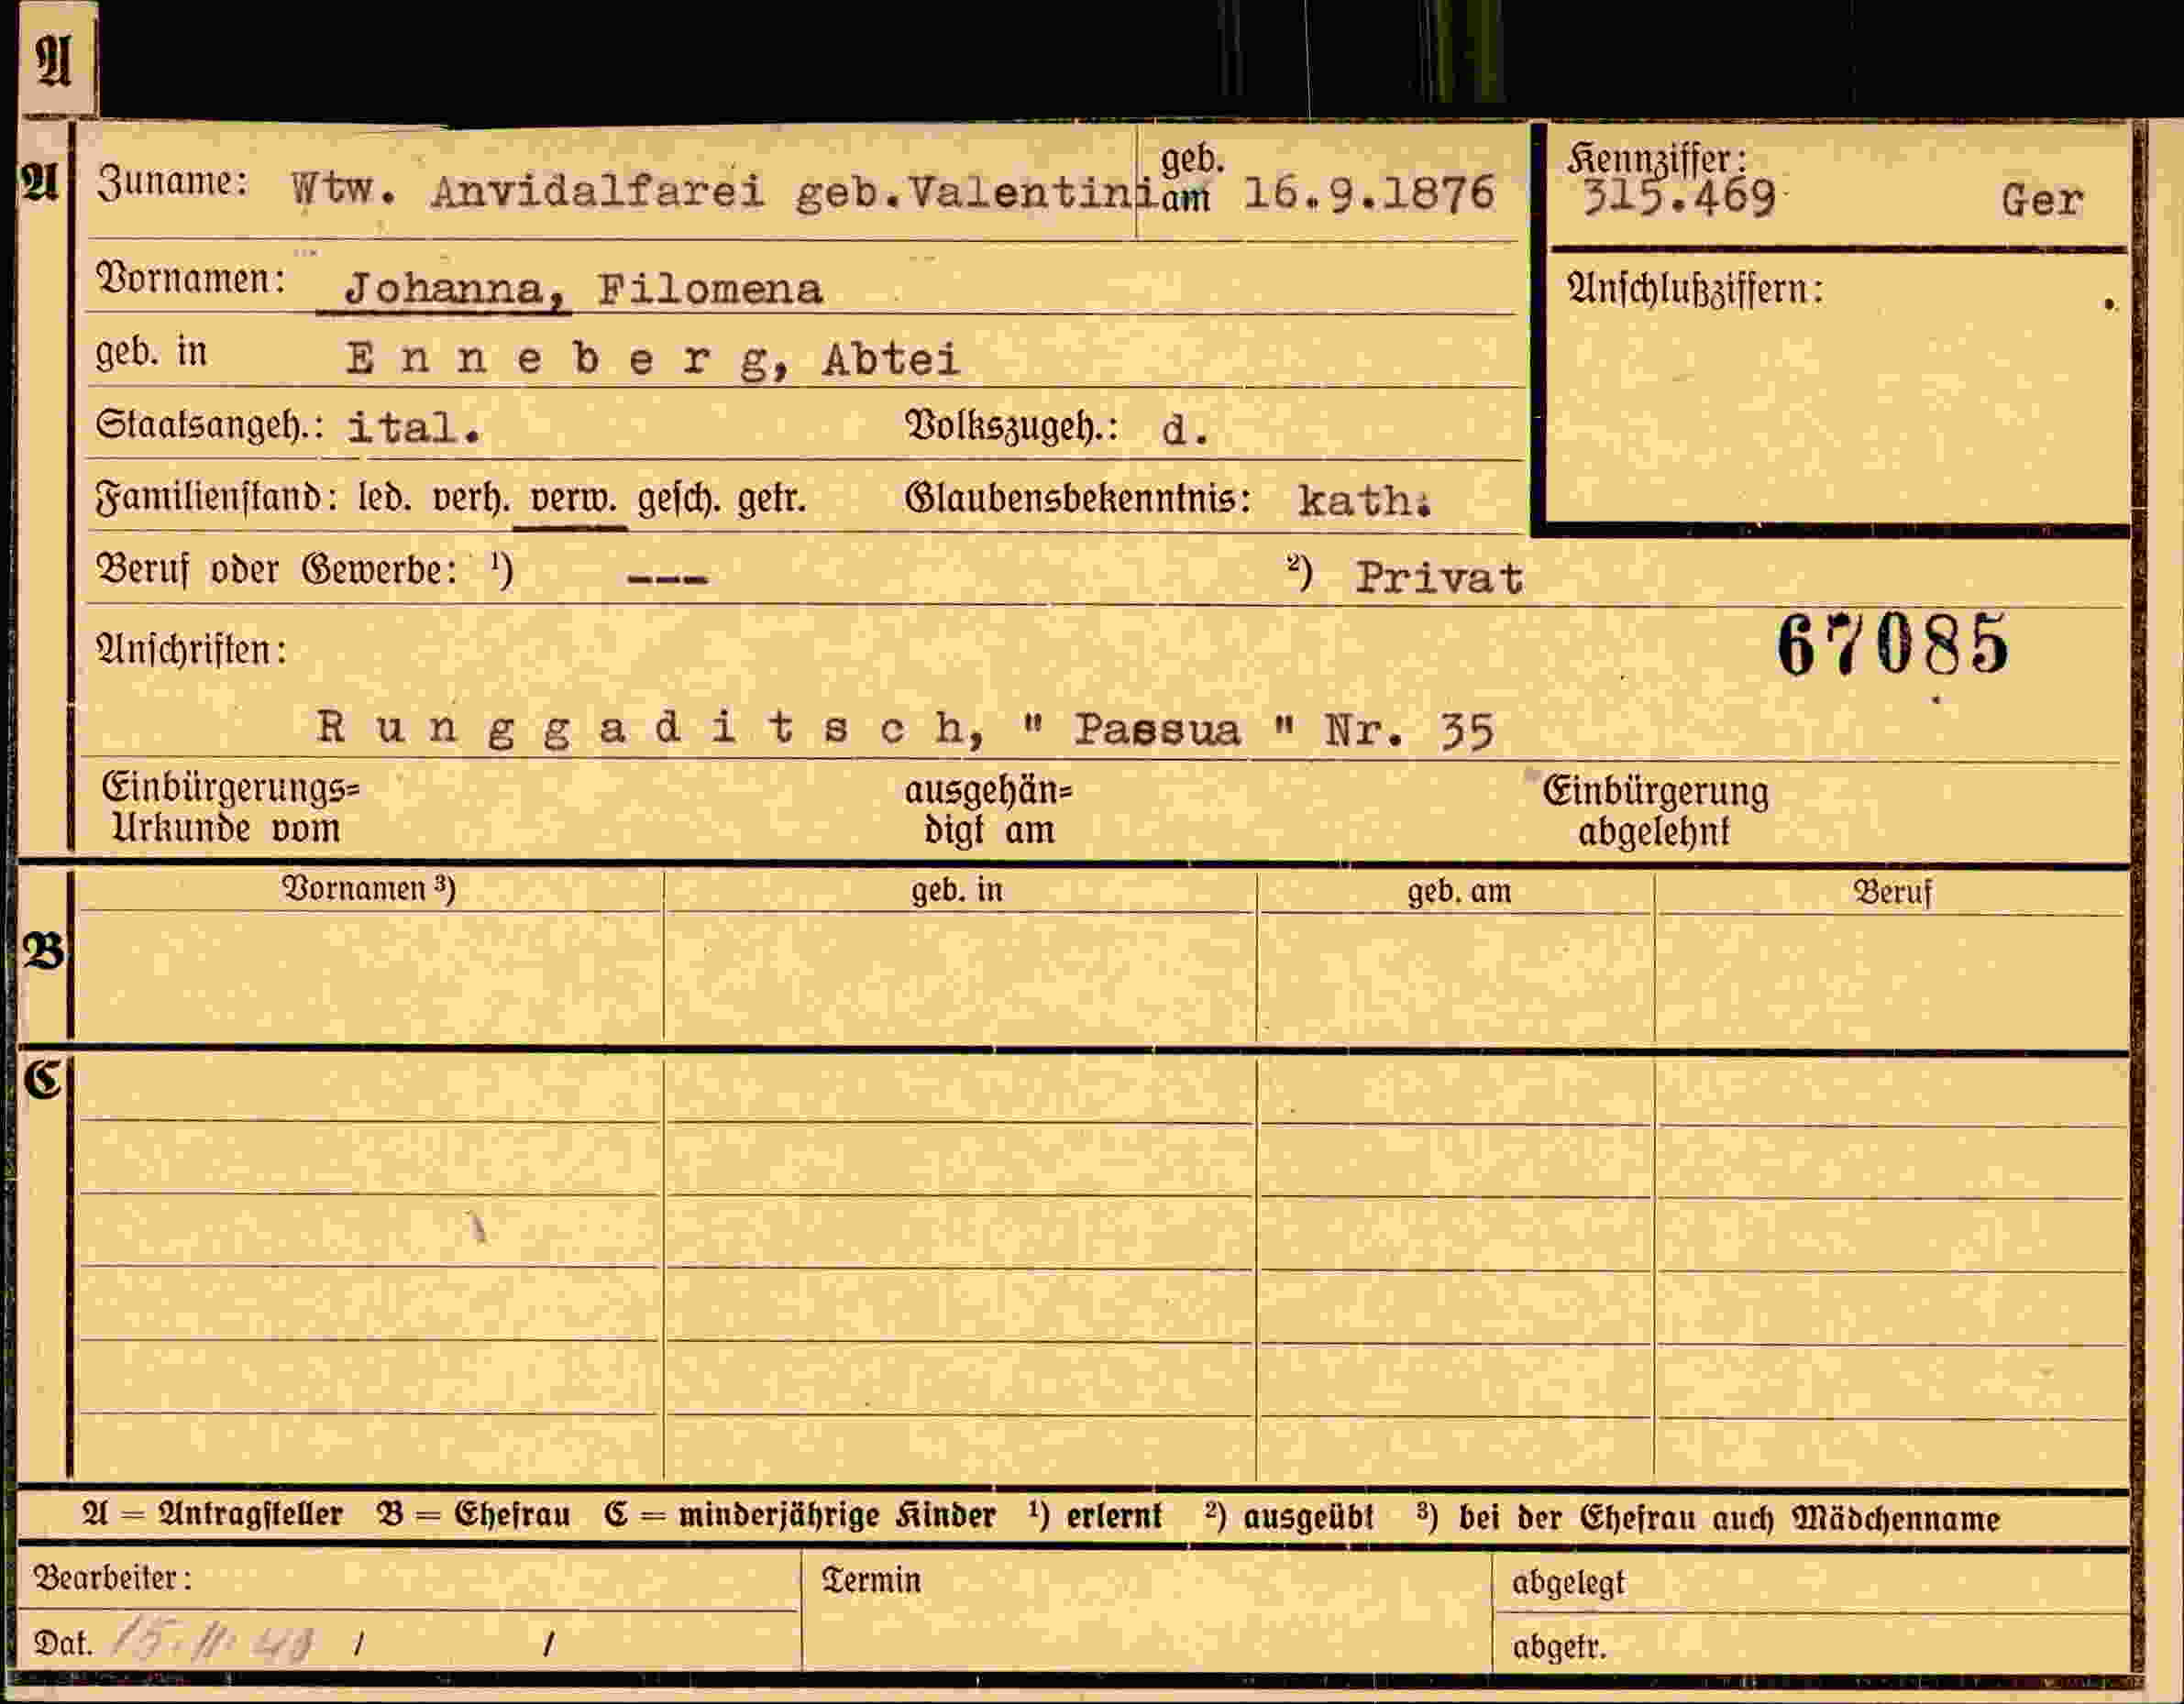 A
A
Zuname: Wtw. Anvidalfarei geb.Valentini geb. am 16.9.1876
Kennziffer:
315.469 Ger
Vornamen: Johanna, Filomena
Anschlußziffern:
geb. in E n n e b e r g, Abtei
Staatsangeh.: ital. Volkszugeh.: d.
Familienstand: led. verh. verw. gesch. getr. Glaubensbekenntnis: kath.
Beruf oder Gewerbe: ¹) --- ²) Privat
67085
Anschriften:
R u n g g a d i t s c h, " Passua " Nr. 35
Einbürgerungs= ausgehän= Einbürgerung
Urkunde vom digt am abgelehnt
Vornamen ³) geb. in geb. am Beruf
B
C
A = Antragsteller B = Ehefrau C = minderjährige Kinder ¹) erlernt ²) ausgeübt ³) bei der Ehefrau auch Mädchenname
Bearbeiter: Termin abgelegt
Dat. / / abgetr.